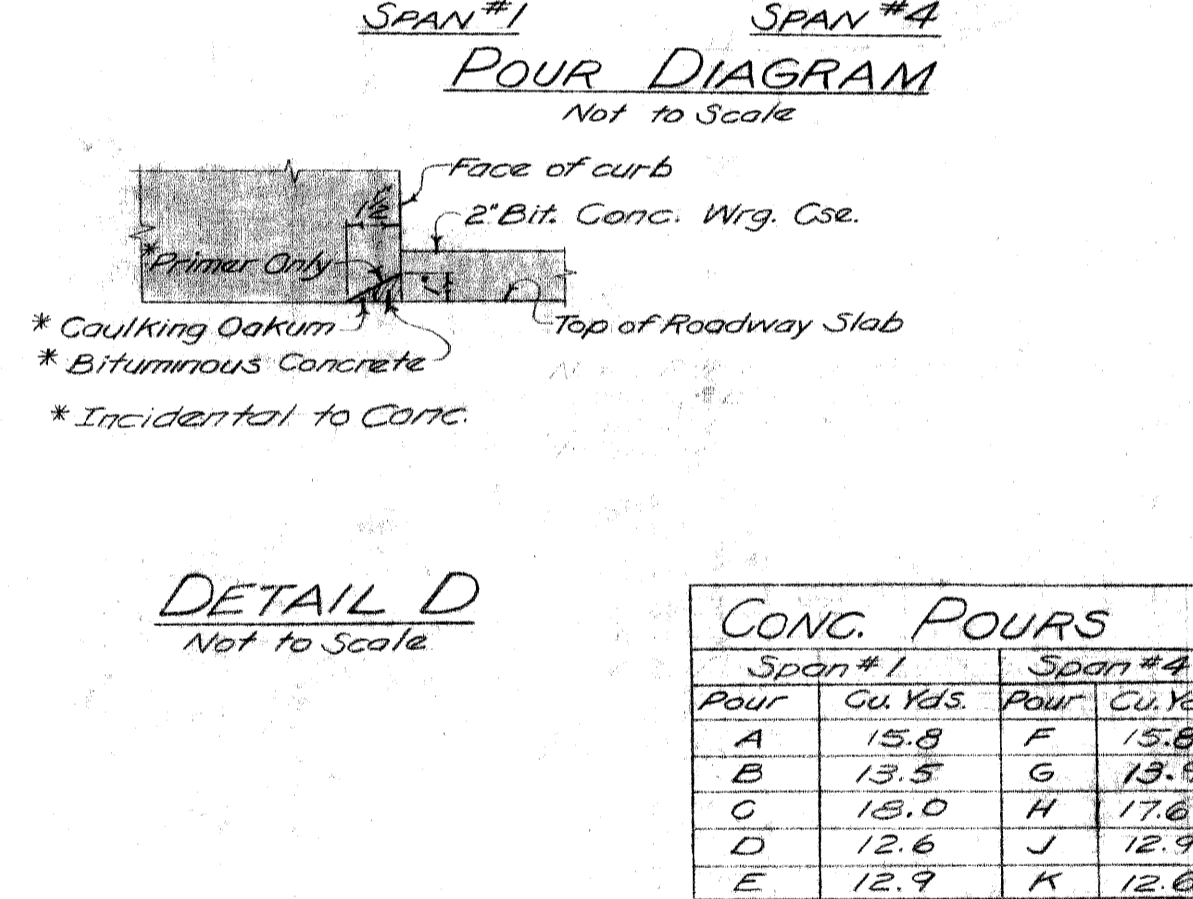 SPAN #1 SPAN #4
POUR DIAGRAM
Not to Scale
Face of curb
1½"
2" Bit. Conc. Wrg. Cse.
*Primer Only
1"
* Caulking Oakum
Top of Roadway Slab
* Bituminous Concrete
* Incidental to Conc.
DETAIL D
Not to Scale
CONC. POURS
Span #1 Span #4
Pour Cu. Yds. Pour Cu. Yd
A 15.8 F 15.8
B 13.5 G 13.
C 18.0 H 17.6
D 12.6 J 12.9
E 12.9 K 12.6